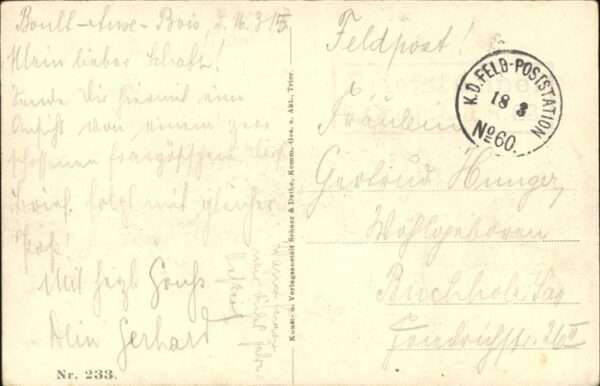 Boult-aux-Bois, d. 16.3.15
Mein lieber Schatz!
Sende Dir hiermit eine
Ansicht von einem zer
schossenen französischen Dorf.
Brief folgt mit gleicher
Post!
Mit herzl. Gruß
Dein Gerhard
Nr. 233.
Kunst- u. Verlagsanstalt Schaar & Dathe, Komm.-Ges. a. Akt., Trier.
Feldpost!
K.D. FELD-POSTSTATION
18 3
No 60.
Fräulein
Gertrud Hunger,
Wohlgeboren
Buchholz, Sa
Friedrichstr. 26 II